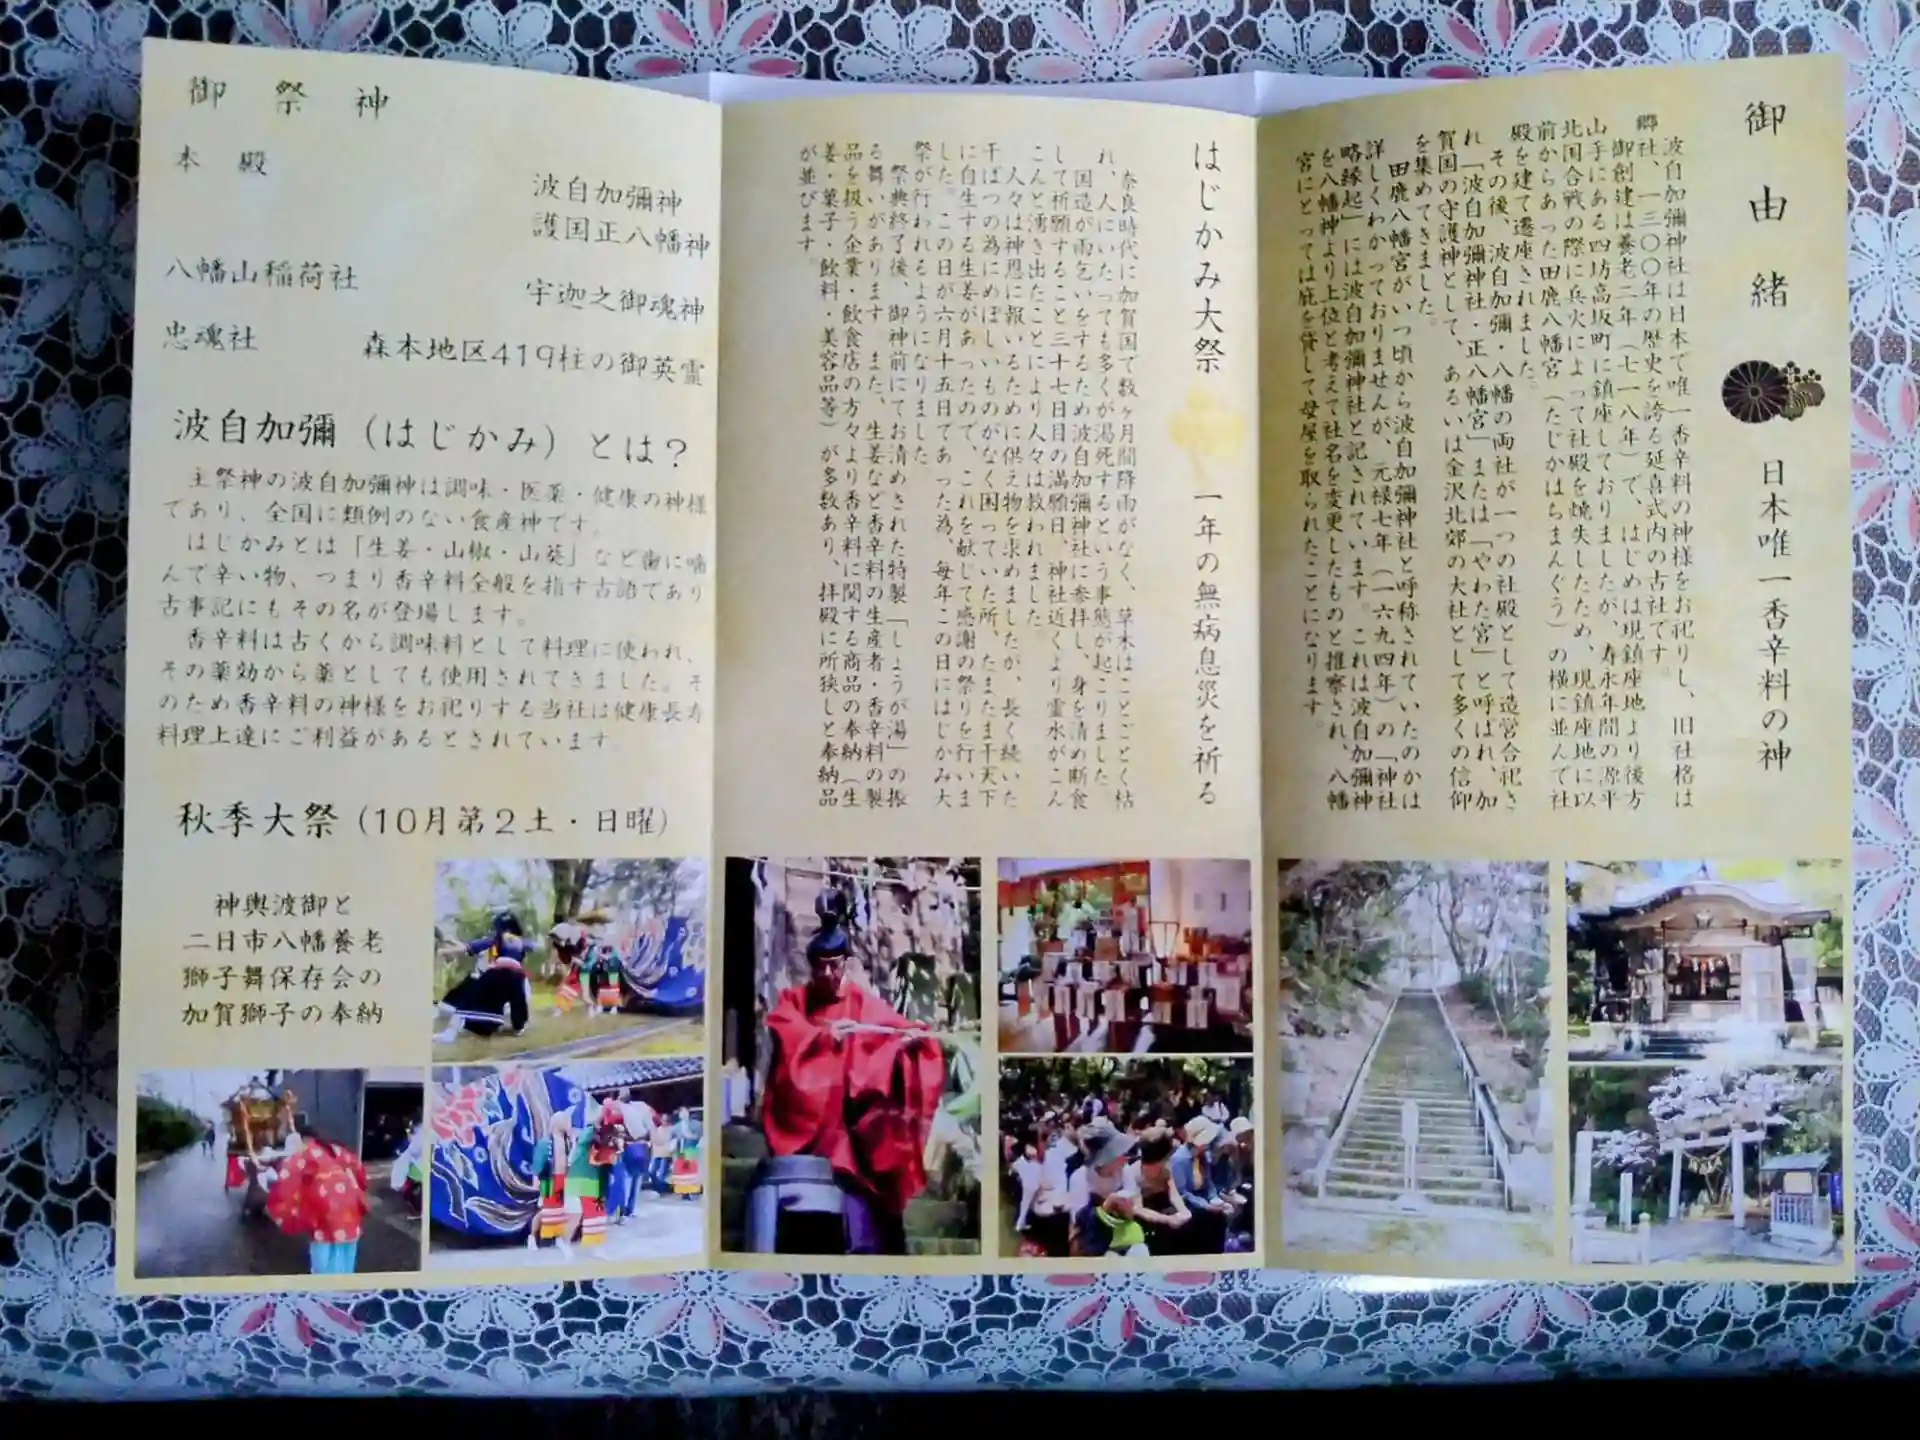 御由緒
日本唯一香辛料の神
波自加彌神社は日本で唯一香辛料の神様をお祀りし、旧社格は
郷社、一三〇〇年の歴史を誇る延喜式内の古社です。
御創建は養老二年（七一八年）で、はじめは現鎮座地より後方
山手にある四坊高坂町に鎮座しておりましたが、寿永年間の源平
北国合戦の際に兵火によって社殿を焼失したため、現鎮座地に以
前からあった田鹿八幡宮（たじかはちまんぐう）の横に並んで社
殿を建て遷座されました。
その後、波自加彌・八幡の両社が一つの社殿として造営合祀さ
れ「波自加彌神社・正八幡宮」または「やわた宮」と呼ばれ、加
賀国の守護神として、あるいは金沢北郊の大社として多くの信仰
を集めてきました。
田鹿八幡宮がいつ頃から波自加彌神社と呼称されていたのかは
詳しくわかっておりませんが、元禄七年（一六九四年）の「神社
略縁起」には波自加彌神社と記されています。これは波自加彌神
を八幡神より上位と考えて社名を変更したものと推察され、八幡
宮にとっては庇を貸して母屋を取られたことになります。
はじかみ大祭
一年の無病息災を祈る
奈良時代に加賀国で数ヶ月間降雨がなく、草木はことごとく枯
れ、人にいたっても多くが渇死するという事態が起こりました。
国造が雨乞いをするため波自加彌神社に参拝し、身を清め断食
して祈願すること三十七日目の満願日、神社近くより霊水がこん
こんと湧き出たことにより人々は救われました。
人々は神恩に報いるために供え物を求めましたが、長く続いた
干ばつの為にめぼしいものがなく困っていた所、たまたま干天下
に自生する生姜があったので、これを献じて感謝の祭りを行いま
した。この日が六月十五日であった為、毎年この日にはじかみ大
祭が行われるようになりました
祭典終了後、御神前にてお清めされた特製「しょうが湯」の振
る舞いがあります。また、生姜など香辛料の生産者・香辛料の製
品を扱う企業・飲食店の方々より香辛料に関する商品の奉納（生
姜・菓子・飲料・美容品等）が多数あり、拝殿に所狭しと奉納品
が並びます。
御祭神
本殿
波自加彌神
護国正八幡神
八幡山稲荷社
宇迦之御魂神
忠魂社
森本地区419柱の御英霊
波自加彌（はじかみ）とは？
主祭神の波自加彌神は調味・医薬・健康の神様
であり、全国に類例のない食産神です。
はじかみとは「生姜・山椒・山葵」など歯に噛
んで辛い物、つまり香辛料全般を指す古語であり
古事記にもその名が登場します。
香辛料は古くから調味料として料理に使われ、
その薬効から薬としても使用されてきました。そ
のため香辛料の神様をお祀りする当社は健康長寿
料理上達にご利益があるとされています。
秋季大祭（10月第２土・日曜）
神輿渡御と
二日市八幡養老
獅子舞保存会の
加賀獅子の奉納